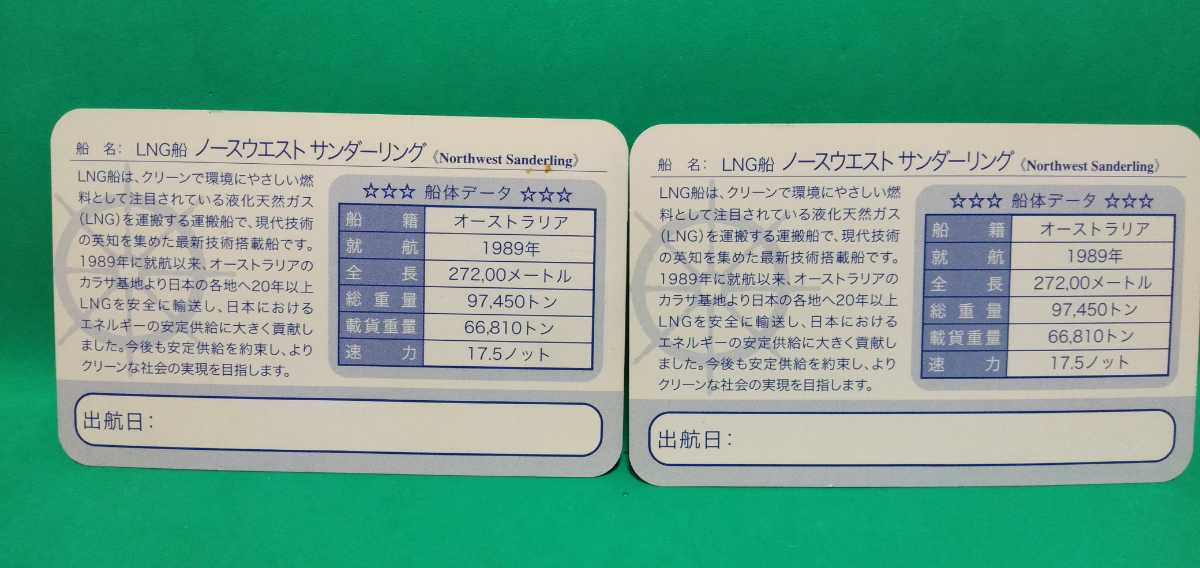 船 名： LNG船 ノースウエスト サンダーリング 《Northwest Sanderling》
LNG船は、クリーンで環境にやさしい燃
料として注目されている液化天然ガス
(LNG)を運搬する運搬船で、現代技術
の英知を集めた最新技術搭載船です。
1989年に就航以来、オーストラリアの
カラサ基地より日本の各地へ20年以上
LNGを安全に輸送し、日本における
エネルギーの安定供給に大きく貢献し
ました。今後も安定供給を約束し、より
クリーンな社会の実現を目指します。
☆☆☆ 船体データ ☆☆☆
船 籍 オーストラリア
就 航 1989年
全 長 272,00メートル
総 重 量 97,450トン
載貨重量 66,810トン
速 力 17.5ノット
出航日：
船 名： LNG船 ノースウエスト サンダーリング 《Northwest Sanderling》
LNG船は、クリーンで環境にやさしい燃
料として注目されている液化天然ガス
(LNG)を運搬する運搬船で、現代技術
の英知を集めた最新技術搭載船です。
1989年に就航以来、オーストラリアの
カラサ基地より日本の各地へ20年以上
LNGを安全に輸送し、日本における
エネルギーの安定供給に大きく貢献し
ました。今後も安定供給を約束し、より
クリーンな社会の実現を目指します。
☆☆☆ 船体データ ☆☆☆
船 籍 オーストラリア
就 航 1989年
全 長 272,00メートル
総 重 量 97,450トン
載貨重量 66,810トン
速 力 17.5ノット
出航日：